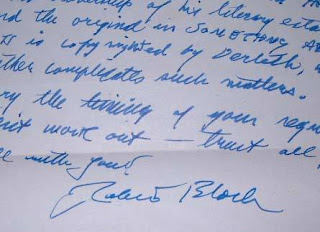 ownership of his literary esta
nd the original in Something A
It is copyrighted by Derleth,
ther complicates such matters.
ry the timing of your requ
n't work out — trust all
ll with you!
Robert Bloch